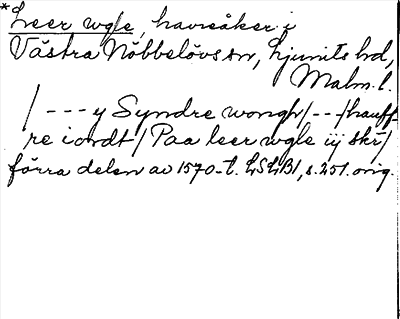 *Leer wgle, havreåker i
Västra Nöbbelövs sn, Ljunits hd,
Malm. l.
/ - - - y Syndre wongh/ - - - /hauff-
re iordt/ Paa leer wgle iij skr/
förra delen av 1570-t. LSLB1, s. 251. orig.